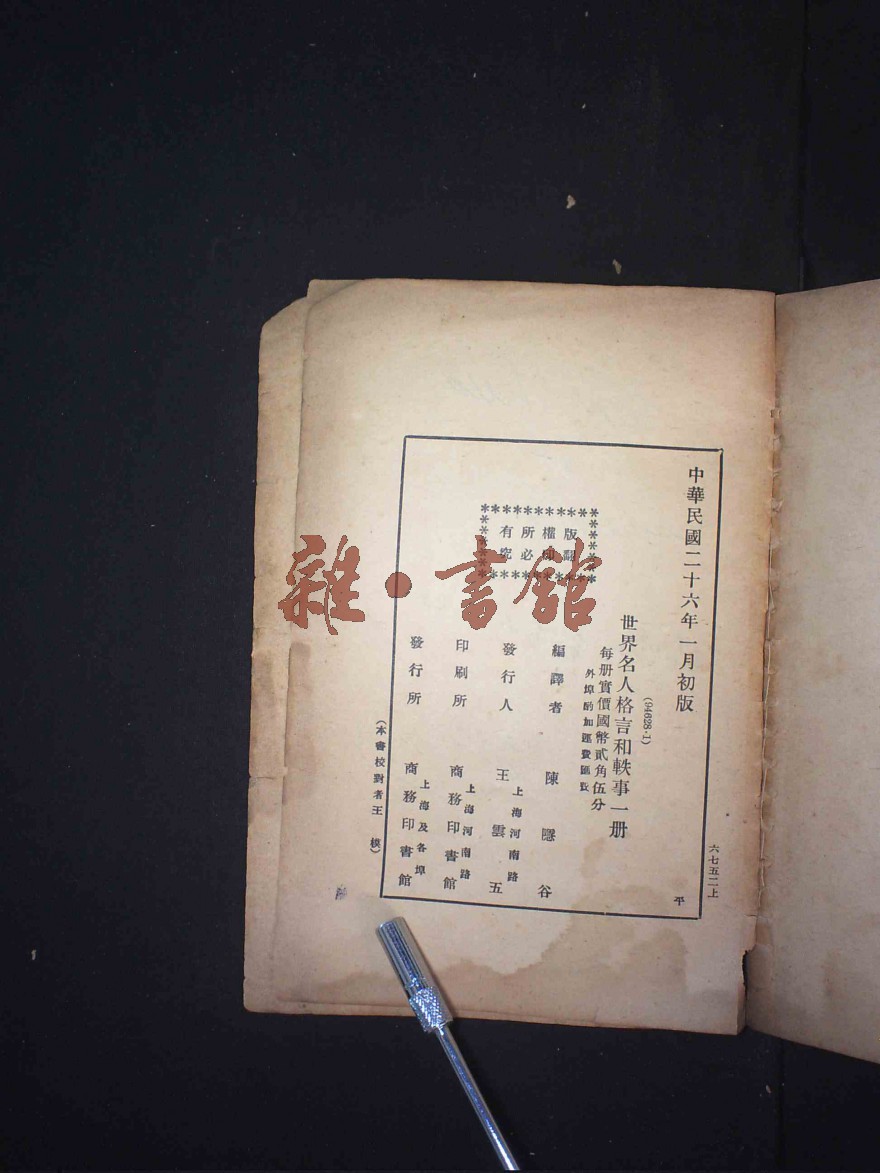 中華民國二十六年一月初版
六七五二上
(94628·1)
世界名人格言和軼事一册
每册實價國幣貳角伍分
外埠酌加運費匯費
版權所有
翻印必究
編譯者 陳隱谷
發行人 王雲五
上海河南路
印刷所 商務印書館
上海河南路
發行所 商務印書館
上海及各埠
(本書校對者王 模)
平
雜·書館